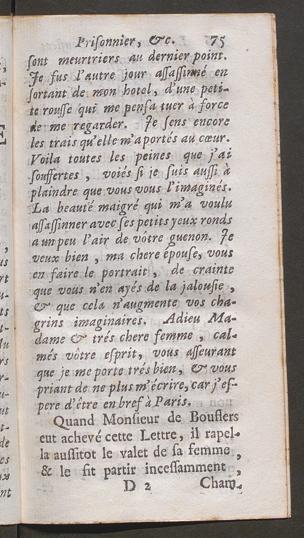 Prisonnier, &c. 75
sont meurtriers au dernier point.
Je fus l'autre jour assassiné en
sortant de mon hotel, d'une peti-
te rousse qui me pensa tuer à force
de me regarder. Je sens encore
les trais qu'elle m'a portés au cœur.
Voila toutes les peines que j'ai
souffertes, voiés si je suis aussi à
plaindre que vous vous l'imaginés.
La beauté maigré qui m'a voulu
assassiner avec ses petits yeux ronds
a un peu l'air de vôtre guenon. Je
veux bien, ma chere épouse, vous
en faire le portrait, de crainte
que vous n'en ayés de la jalousie,
& que cela n'augmente vos cha-
grins imaginaires. Adieu Ma-
dame & trés chere femme, cal-
més vôtre esprit, vous asseurant
que je me porte trés bien, & vous
priant de ne plus m'écrire, car j'es-
pere d'être en bref à Paris.
Quand Monsieur de Bouflers
eut achevé cette Lettre, il rapel-
la aussitot le valet de sa femme,
& le fit partir incessamment,
D 2 Cham-